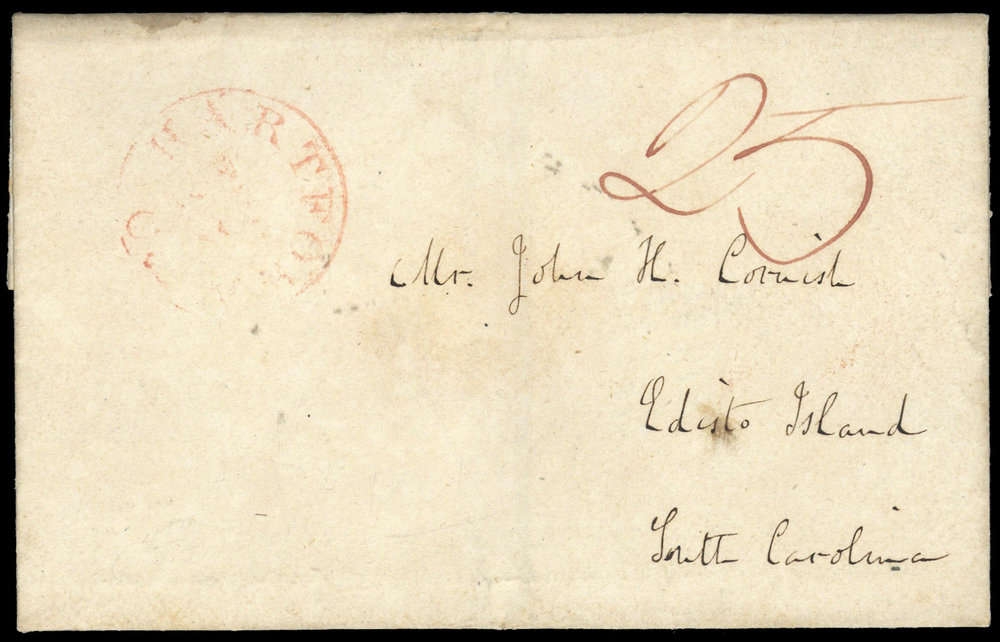 HARTFORD
25
Mr. John H. Cornish
Edisto Island
South Carolina